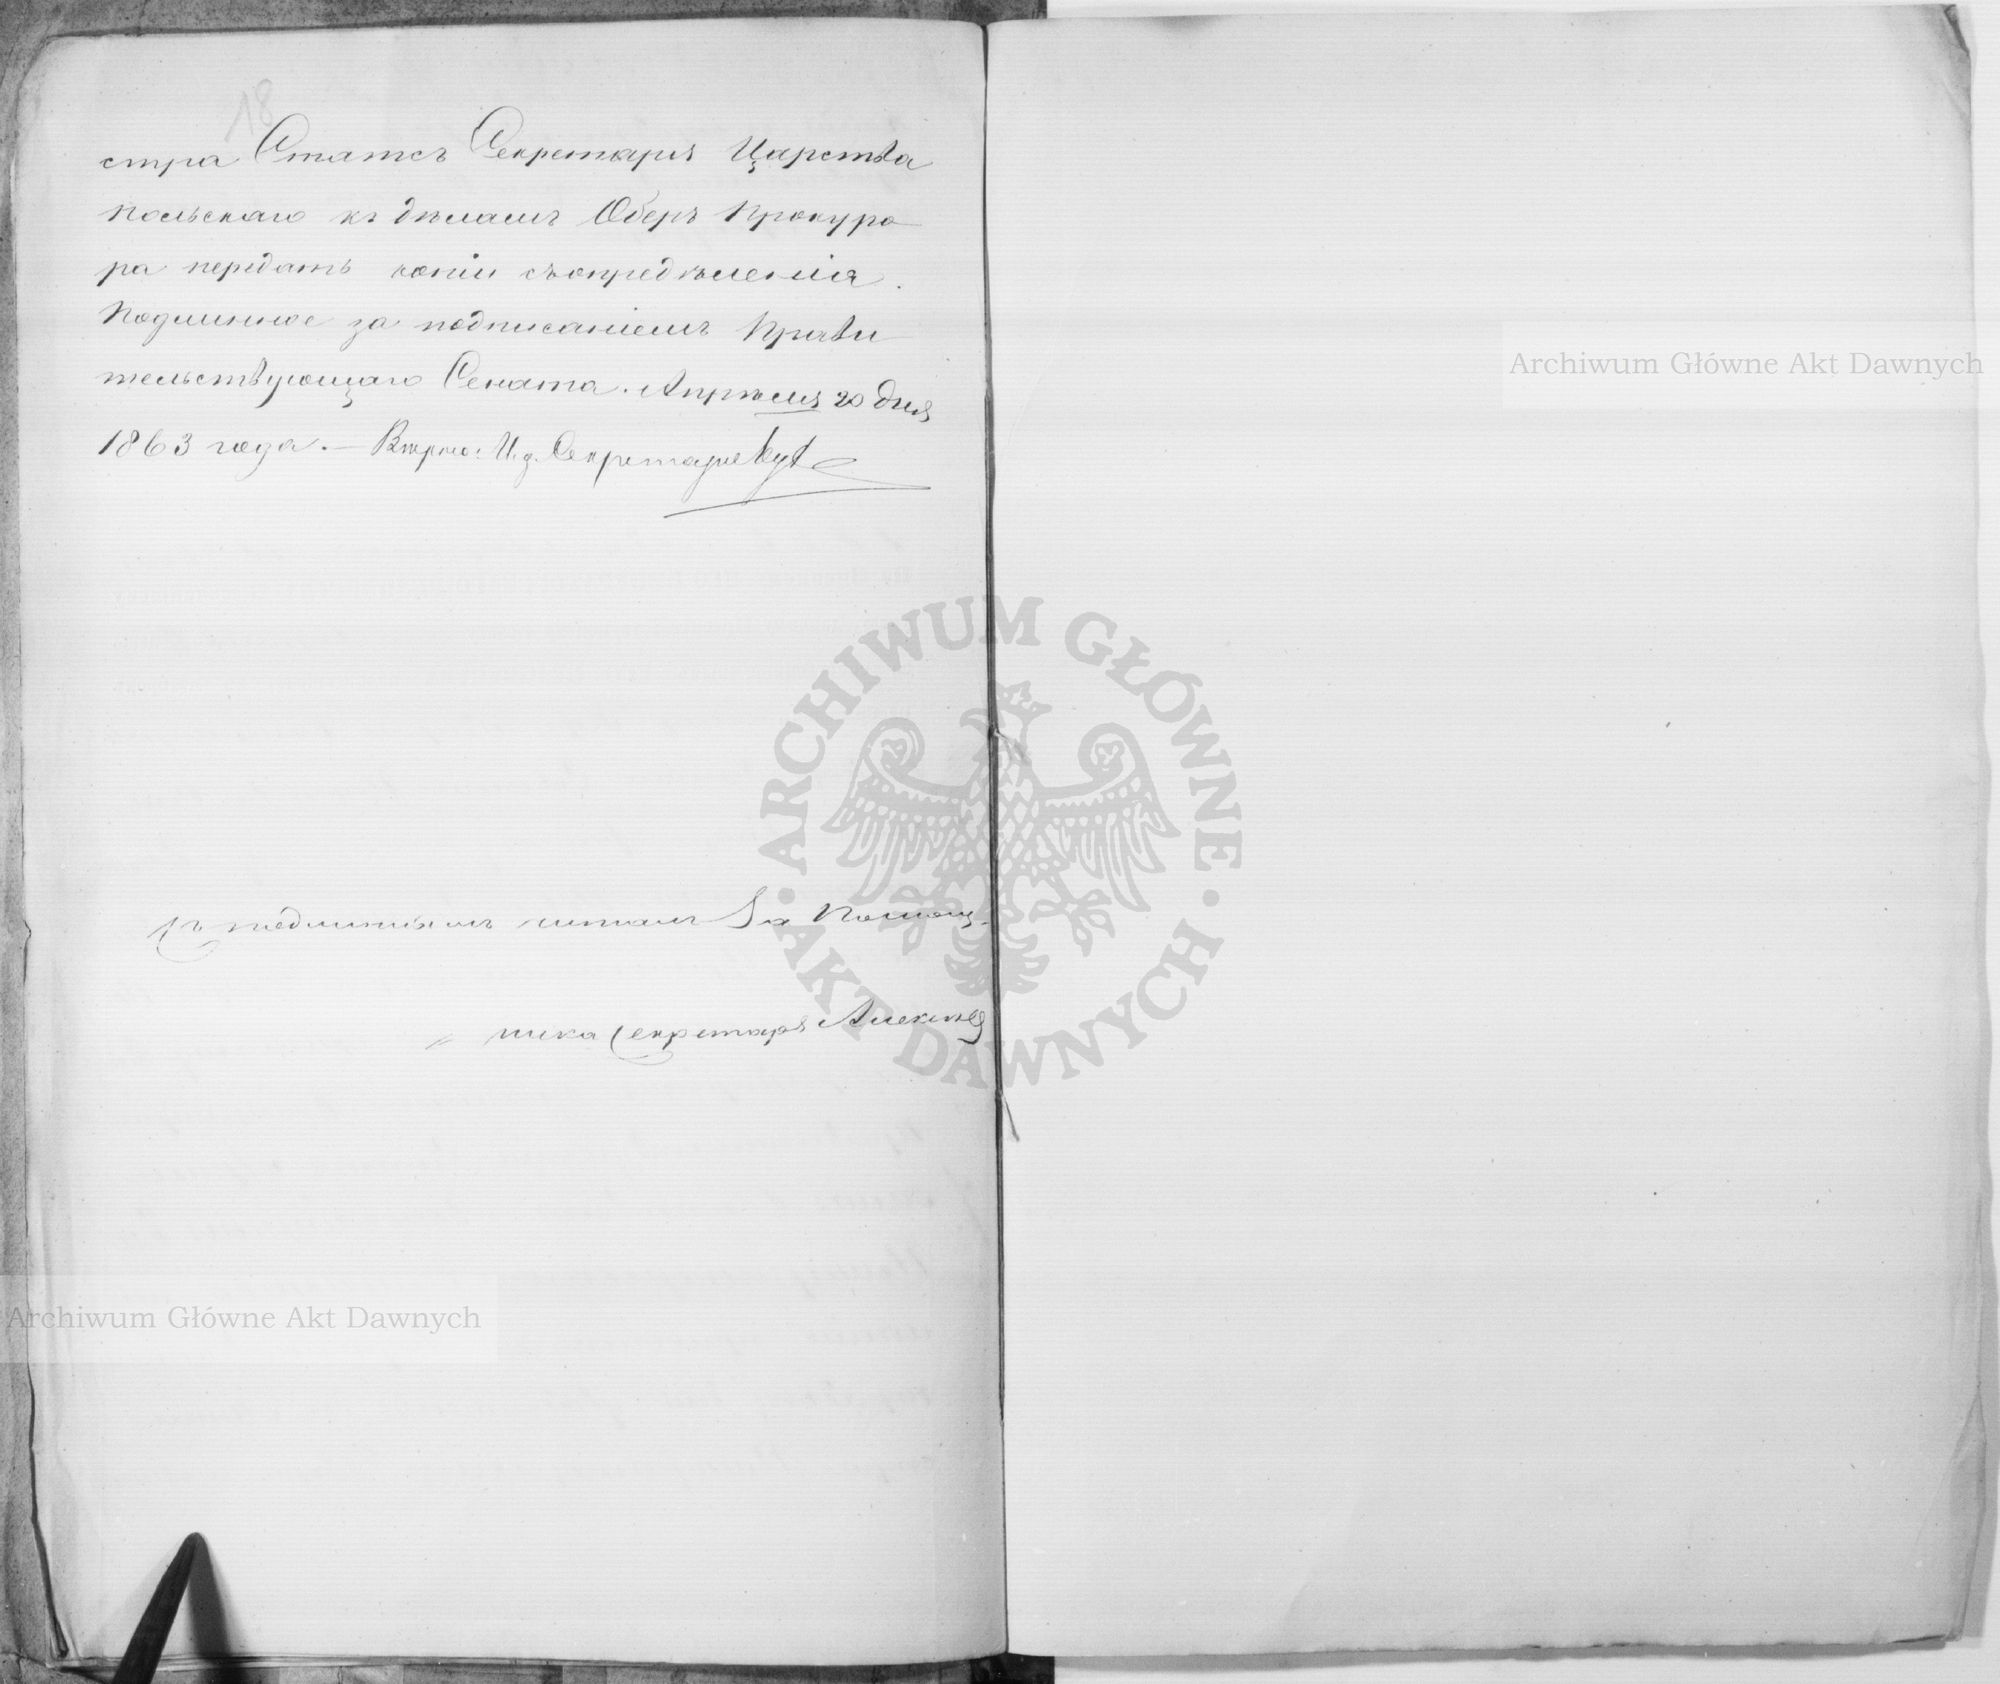 18
стра Статсъ Секретаря Царства
Польскаго къ дѣламъ Оберъ Прокуро
ра передать копіи съ опредѣленія.
Подлинное за подписаніемъ Прави
тельствующаго Сената. Апрѣля 20 дня
1863 года. — Вѣрно: И. д. Секретаря
Съ подлиннымъ читалъ За Помощ-
ника Секретаря Алексѣев
Archiwum Główne Akt Dawnych
Archiwum Główne Akt Dawnych
ARCHIWUM GŁÓWNE
AKT DAWNYCH